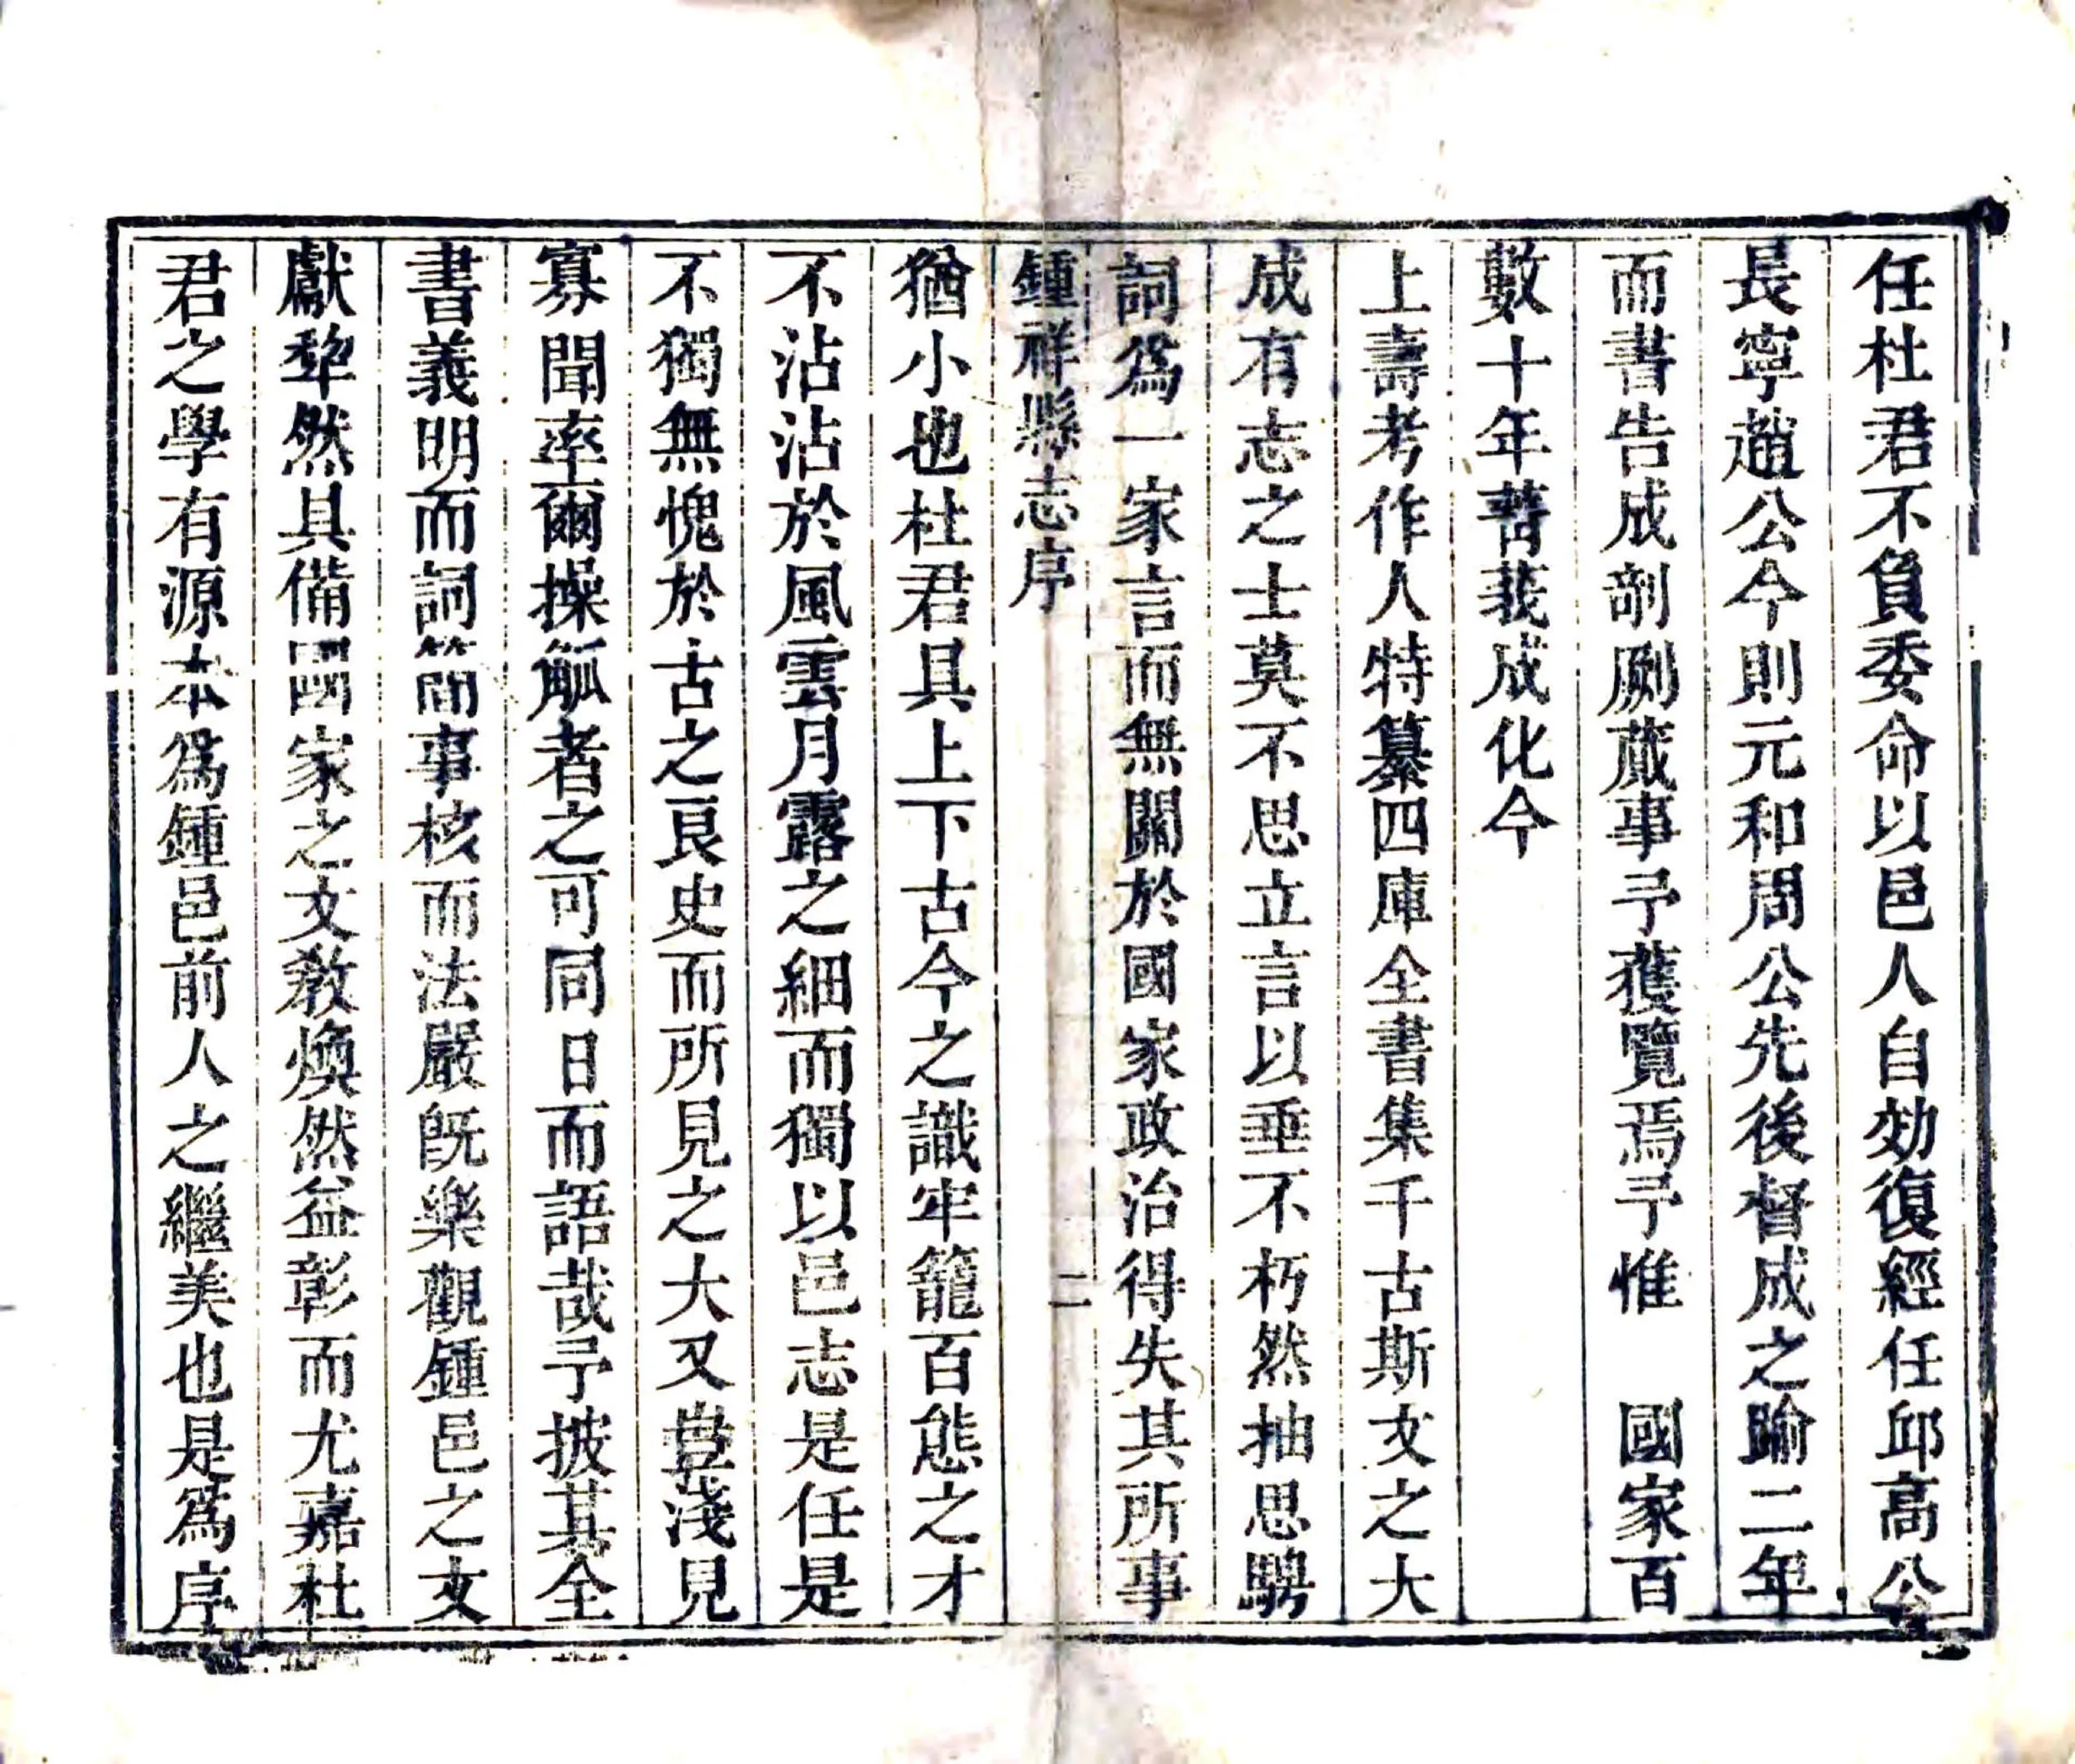 任杜君不負委命以邑人自効復經任邱高公
長寧趙公今則元和周公先後督成之踰二年
而書告成剞劂蕆事予獲覽焉予惟　國家百
數十年菁莪成化今
上壽考作人特纂四庫全書集千古斯文之大
成有志之士莫不思立言以垂不朽然抽思騁
詞爲一家言而無關於國家政治得失其所事
鍾祥縣志序
二
猶小也杜君具上下古今之識牢籠百態之才
不沾沾於風雲月露之細而獨以邑志是任是
不獨無愧於古之良史而所見之大又豈淺見
寡聞率爾操觚者之可同日而語哉予披其全
書義明而詞簡事核而法嚴旣樂觀鍾邑之文
獻犂然具備國家之文敎煥然益彰而尤嘉杜
君之學有源本爲鍾邑前人之繼美也是爲序